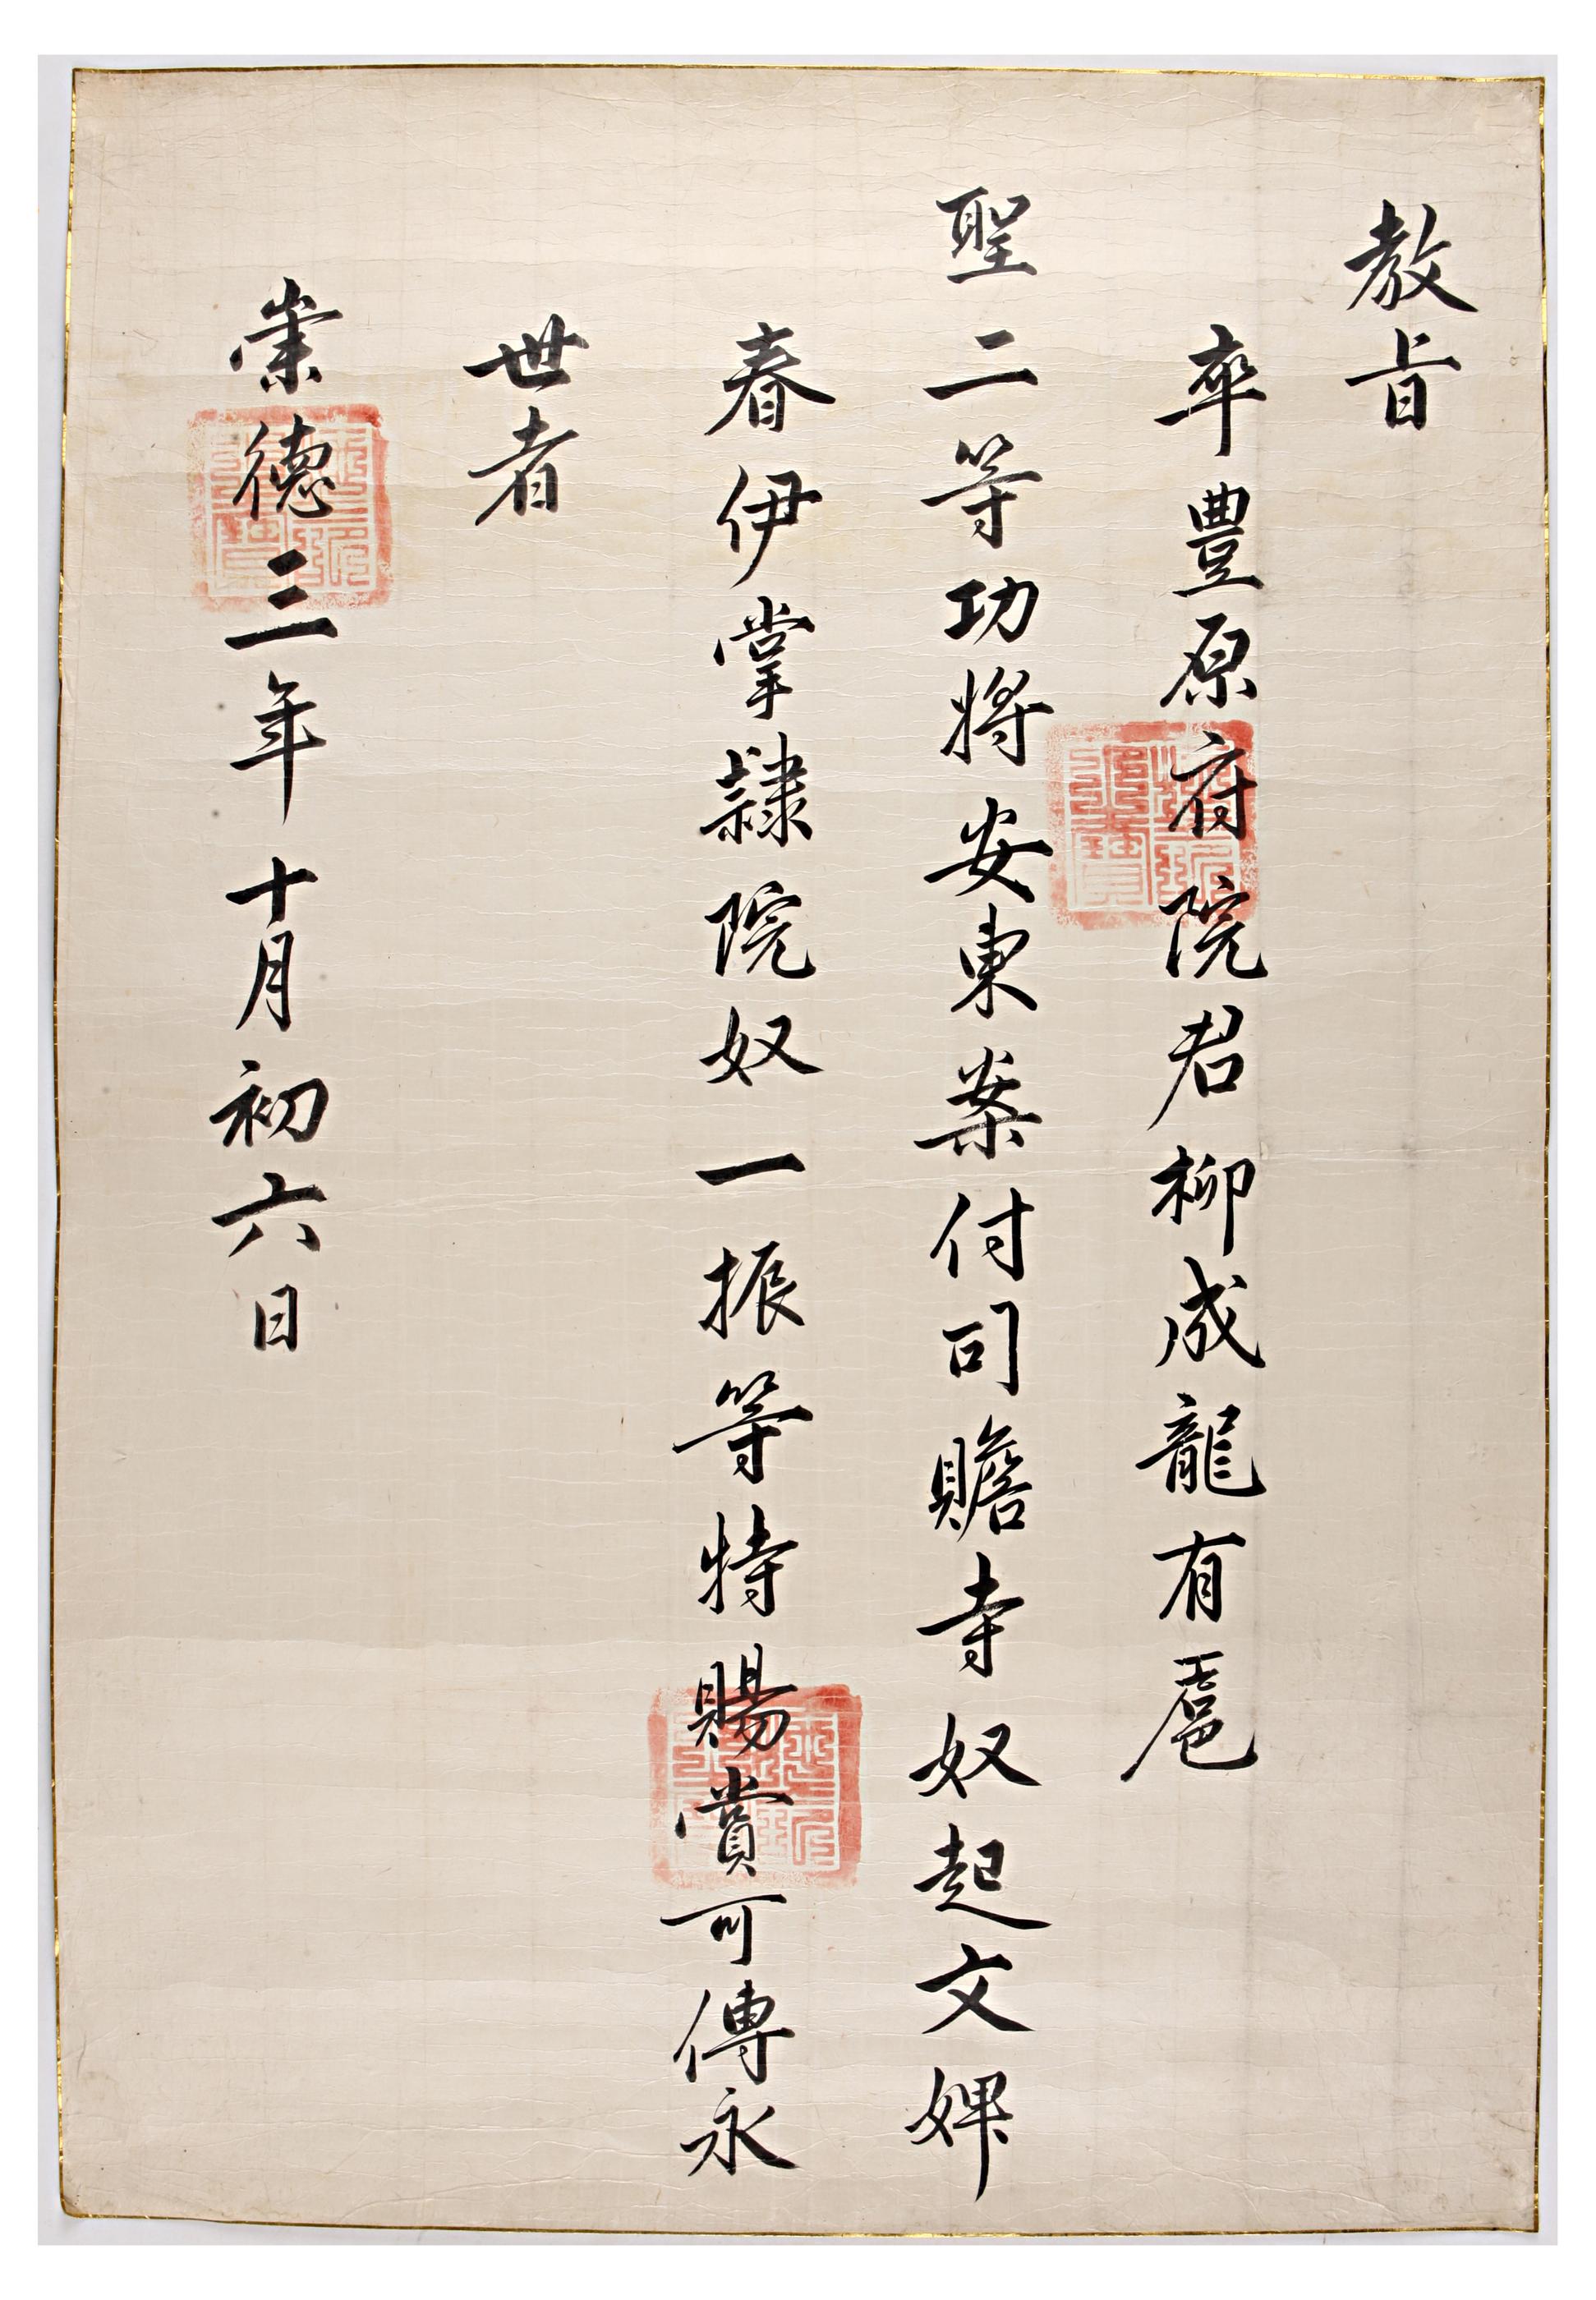 教旨
卒豊原府院君柳成龍有扈
聖二等功將安東案付司贍寺奴起文婢
春伊掌隷院奴一振等特賜賞可傳永
世者
崇德三年十月初六日